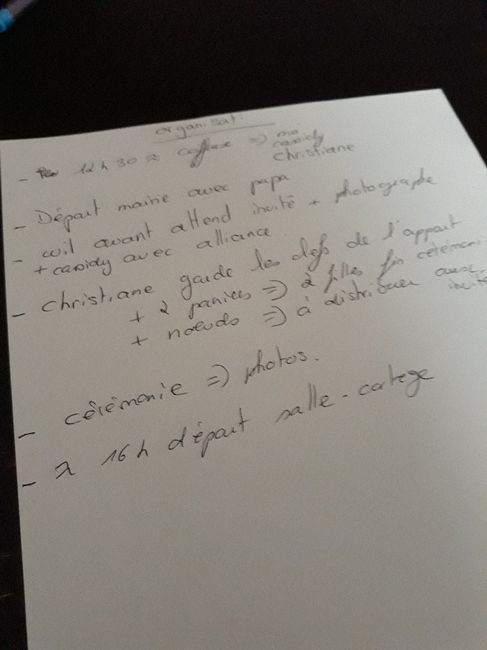 organisat°
- 12h30 coiffeur => moi
cassidy
Christiane
- Départ mairie avec papa
- wil avant attend invité + photographe
+ cassidy avec alliance
- Christiane garde les clefs de l'appart
+ 2 paniers => 2 filles fin cérémonie
+ noeuds => à distribuer aux invités
- cérémonie => photos.
- 16h départ salle - cortège